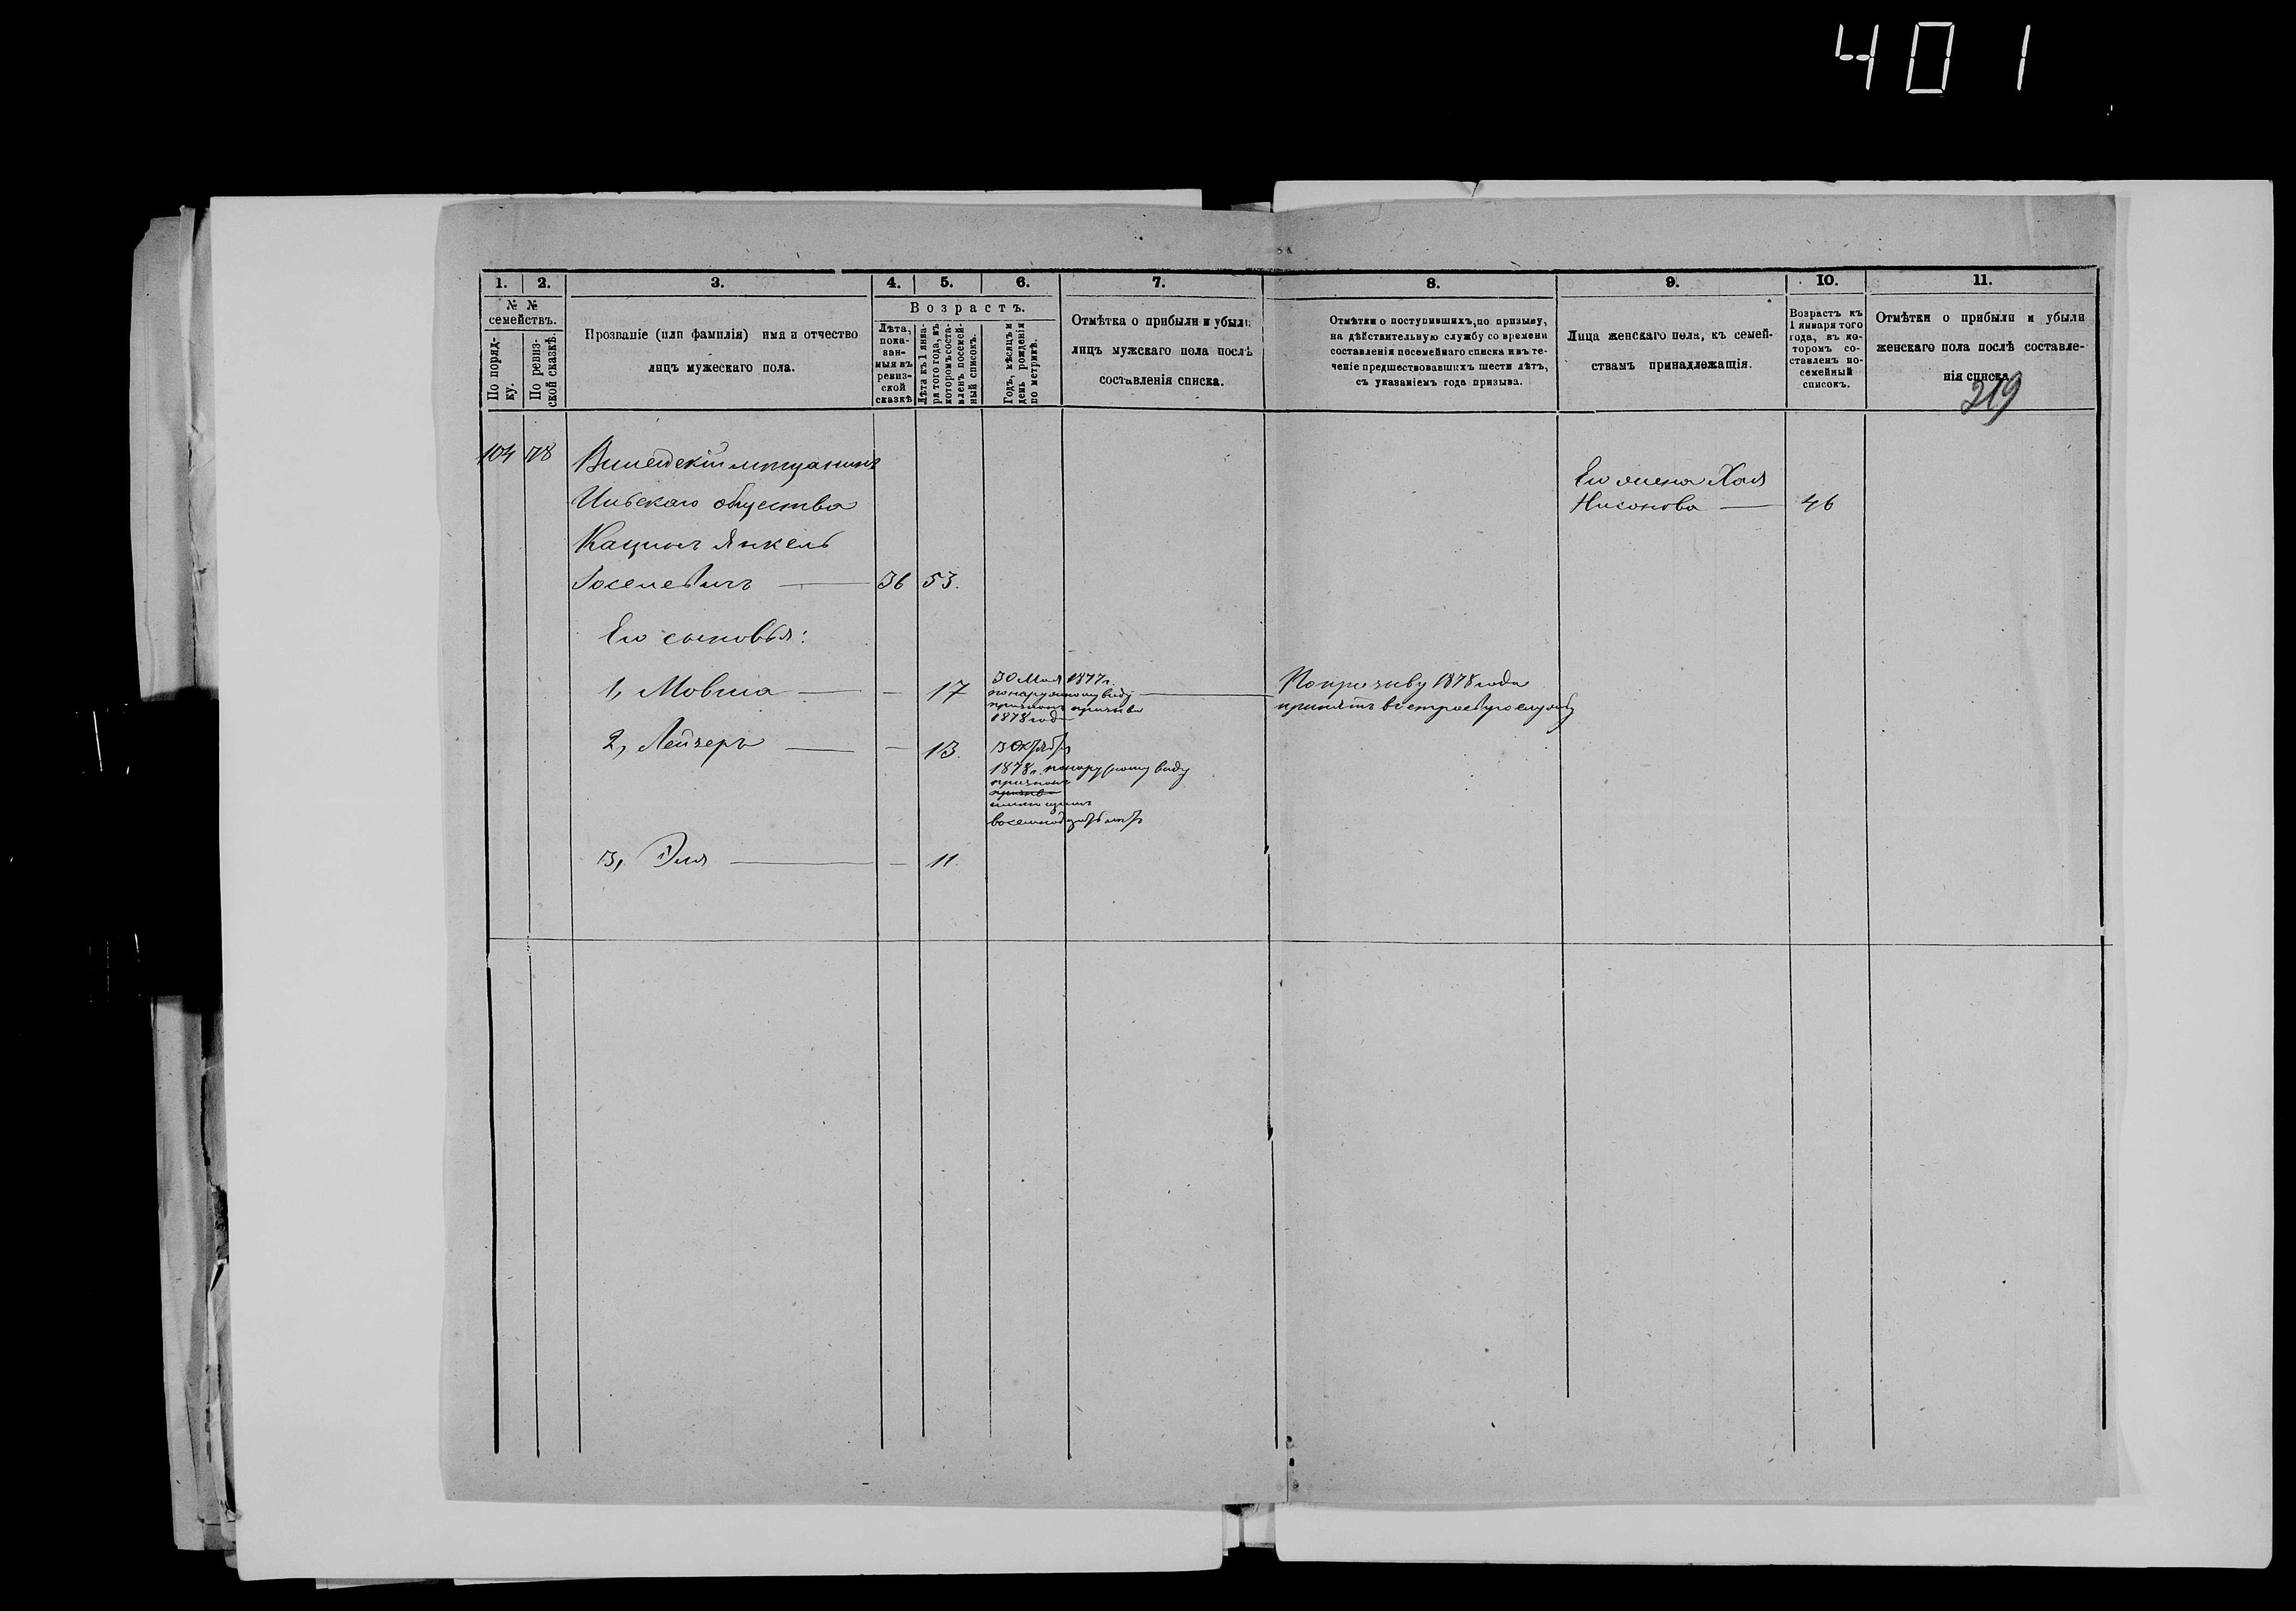 401
1. 2. 3. 4. 5. 6. 7. 8. 9. 10. 11.
№ №
семействъ.
По поряд-
ку.
По ревиз-
ской сказкѣ.
Прозваніе (или фамилія) имя и отчество
лицъ мужескаго пола.
Возрастъ.
Лѣта,
пока-
зан-
ныя въ
ревиз-
ской
сказкѣ
Лѣта къ 1 янва-
ря того года, въ
которомъ соста-
вленъ посемей-
ный списокъ.
Годъ, мѣсяцъ и
день рожденія
по метрикѣ.
Отмѣтка о прибыли и убыли
лицъ мужскаго пола послѣ
составленія списка.
Отмѣтки о поступившихъ, по призыву,
на дѣйствительную службу со времени
составленія посемейнаго списка и въ те-
ченіе предшествовавшихъ шести лѣтъ,
съ указаніемъ года призыва.
Лица женскаго пола, къ семей-
ствамъ принадлежащія.
Возрастъ къ
1 января того
года, въ ко-
торомъ со-
ставленъ по-
семейный
списокъ.
Отмѣтки о прибыли и убыли
женскаго пола послѣ составле-
нія списка.
319
104 78 Вилейскій мѣщанинъ
Ильскаго общества
Кацынъ Янкель
Іоселевичъ — 36 53.
Его жена Хая
Нисонова — 46
Его сыновья:
1, Мовша — — 17
30 Мая 1877 г.
по наружному виду
признанъ призыва
1878 года
По призыву 1878 года
принятъ въ строевую службу
2, Лейзеръ — — 13.
3 Октября
1878 г. по наружному виду
признанъ
имѣющимъ
восемнадцать лѣтъ
3, Эля — — 11.